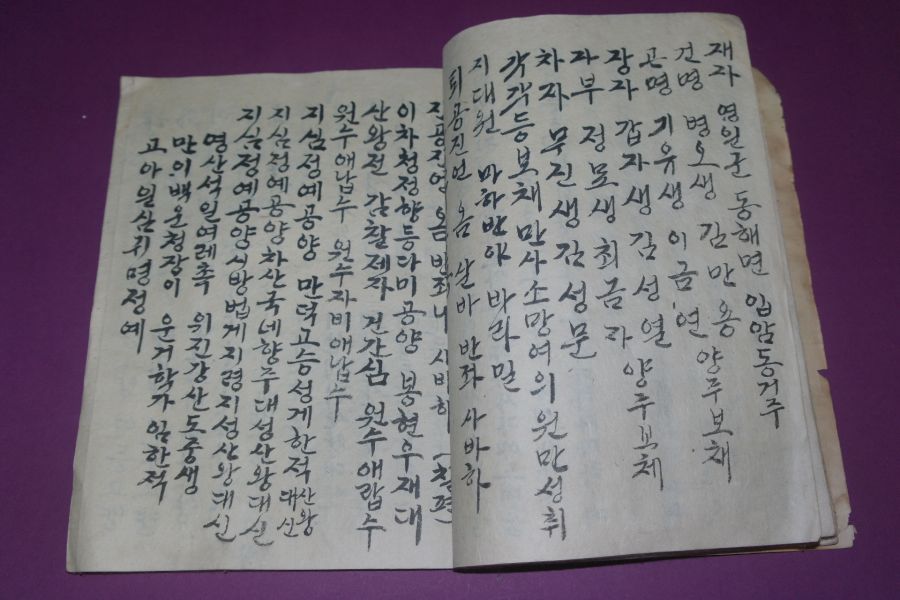 재자 영일군 동해면 입암동거주
건명 병오생 김만용 양주보채
곤명 기유생 이금연
장자 갑자생 김성열 양주보체
자부 정묘생 최금자
차자 무진생 김성문
각각등보채 만사소망여의원만성취
지대원 마하반야 바라밀
퇴공진언 옴 살바 반좌 사바하
진공진언 옴 반좌니 사바하 (칠편
이차청정향등다미공양 봉현우재대
산왕전 감찰제자 건간심 원수애랍수
원수애납수 원수자비애납수
지심정예공양 만덕고승성게한적 산왕대신
지심정예공양하산국네향주대성산왕대신
지심정예공양시방법게지령지성산왕대신
영산석일여레촉 위진강산도중생
만의백운청장이 운거학가임한적
고아일심귀명정예